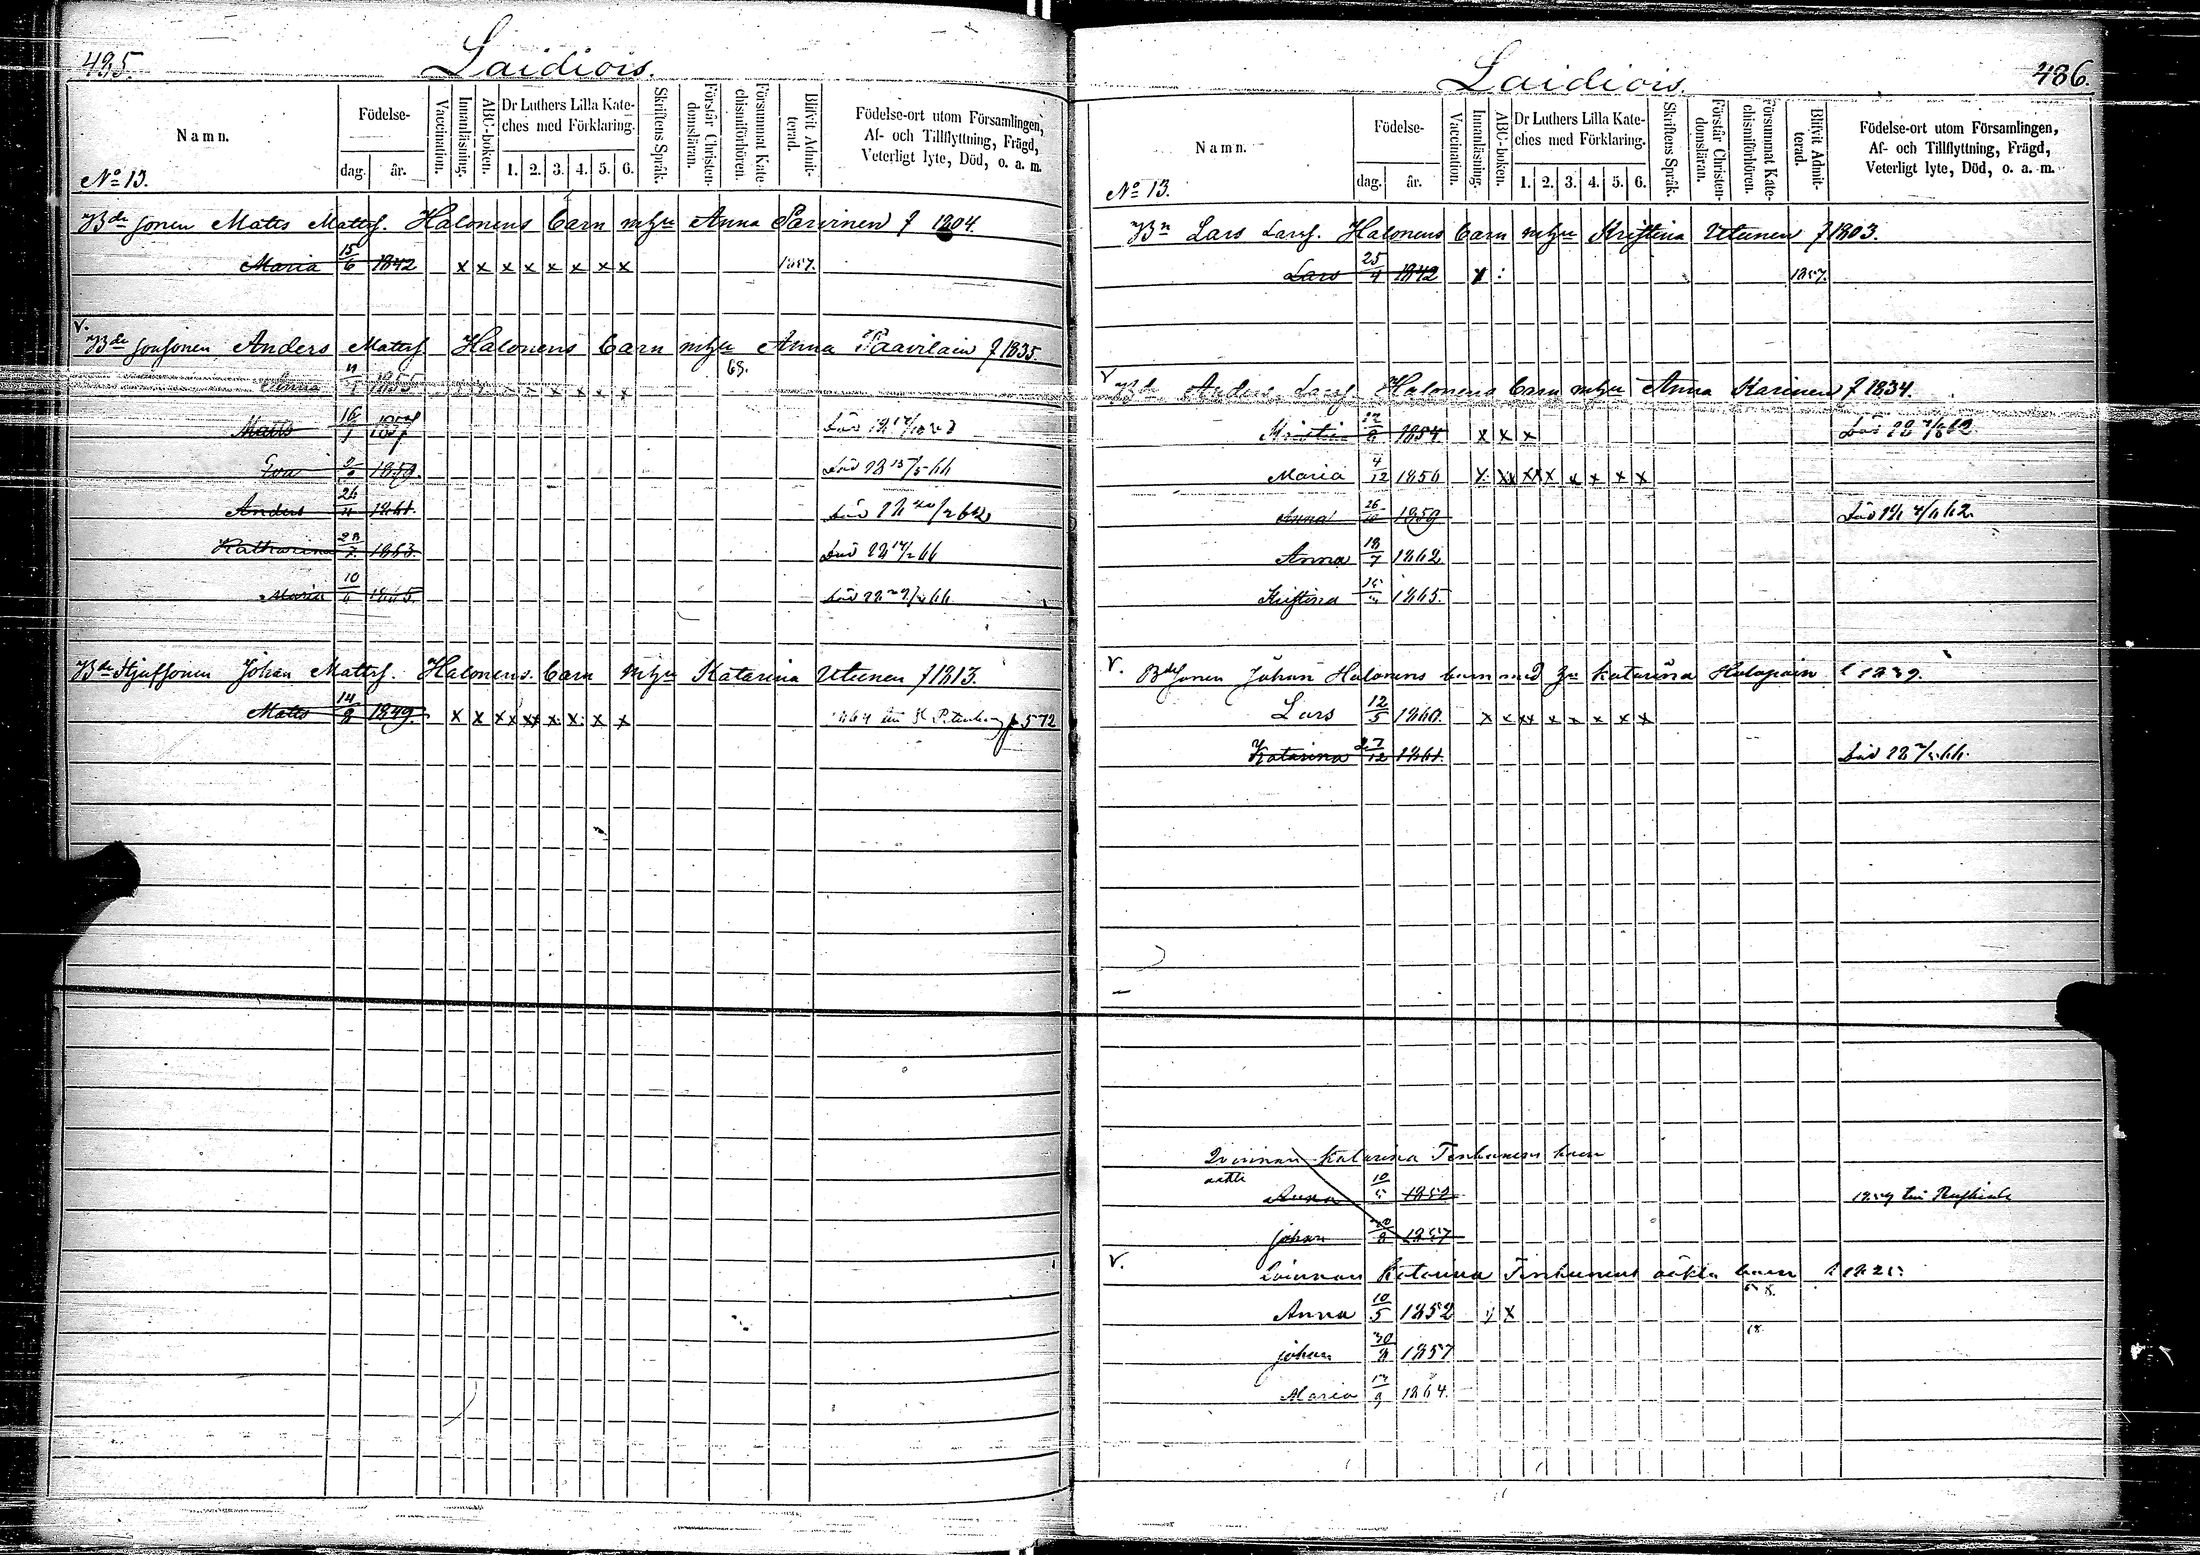 485.
Laidiois.
Namn.
Födelse-
dag.
år.
Vaccination.
Innanläsning.
ABC-boken.
Dr Luthers Lilla Kate-
ches med Förklaring.
1. 2. 3. 4. 5. 6.
Skriftens Språk.
Förstår Christen-
domsläran.
Försummat Kate-
chismiförhören.
Blifvit Admit-
terad.
Födelse-ort utom Församlingen,
Af- och Tillflyttning, Frägd,
Veterligt lyte, Död, o. a. m.
No 13.
Bde sonen Matts Mattsf. Halonens barn m hu Anna Parvinen f 1804.
Maria 15/6 1842 x x x x x x x x 1857.
v.
Bde Anders Mattsf. Halonens barn m hu Anna Paavilain f 1835.
69.
Anna 1855
Matts 16/1 1857 Död
Eva 1859. Död 18 15/5 66
Anders 26/11 1861. Död
Katharina 28/7 1863. Död
Maria 10/6 1865. Död
Bde Johan Mattsf. Halonens barn m hu Katarina Uteenen f 1813.
Matts 14/8 1849. x x x x x x x x p 572
486.
Laidiois.
Namn.
Födelse-
dag.
år.
Vaccination.
Innanläsning.
ABC-boken.
Dr Luthers Lilla Kate-
ches med Förklaring.
1. 2. 3. 4. 5. 6.
Skriftens Språk.
Förstår Christen-
domsläran.
Försummat Kate-
chismiförhören.
Blifvit Admit-
terad.
Födelse-ort utom Församlingen,
Af- och Tillflyttning, Frägd,
Veterligt lyte, Död, o. a. m.
No 13.
Bn Lars Larsf. Halonens barn m hu Kristina Uteenen f 1803.
Lars 25/4 1842 x : 1857.
v
Anders Larsf. Halonens barn m hu Anna Karinen f 1834.
1854 x x x Död
Maria 4/12 1856 x x x x x x x x
Anna 26/10 1859 Död
Anna 18/7 1862
Kristina 1865.
v. Johan Halonens barn med hu Katarina Holopain f 1839.
Lars 12/5 1860. x x x x x x x x
Katarina 27/12 1861. Död
Qvinnan Katarina Tenhunens barn
oäkta
Anna 10/5 1852
Johan 1857
v.
Qvinnan Katarina Tenhunens oäkta barn
Anna 10/5 1852 x
Johan 30/8 1857
Maria 1864.